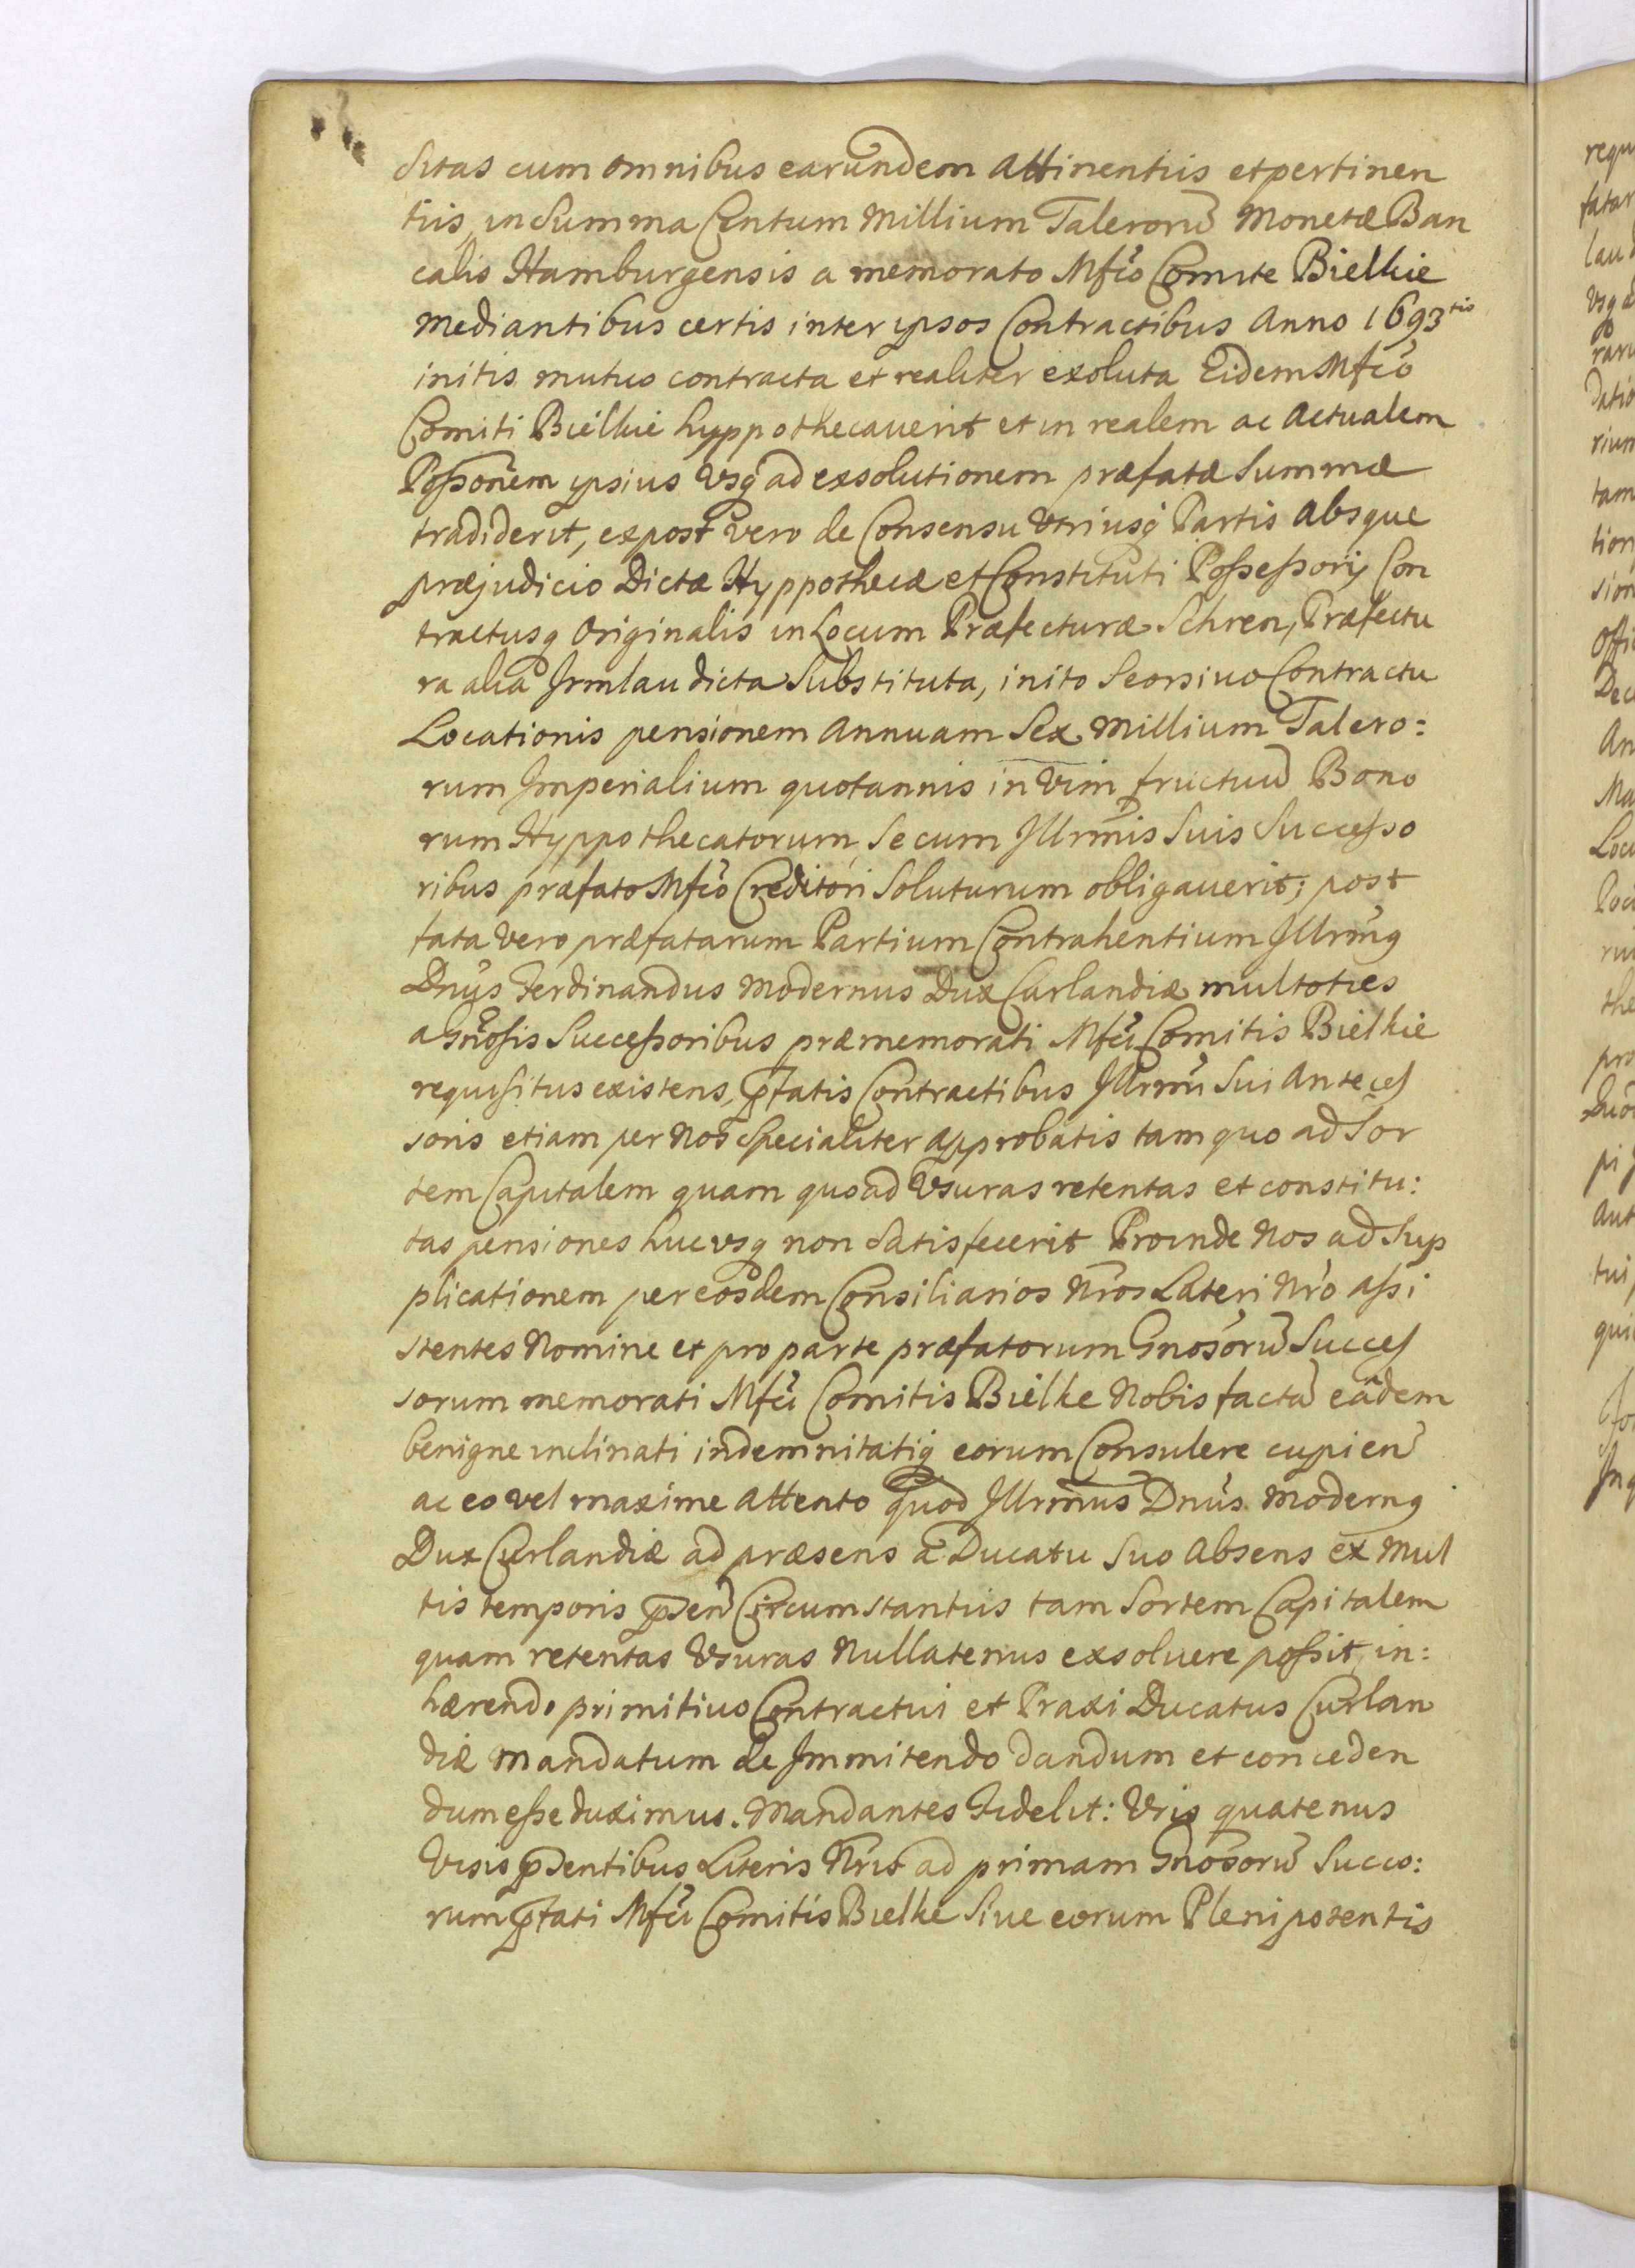 sitas cum omnibus earundem attinentiis et pertinen
tiis, in Summa Centum Millium Talerorũ Monetæ Ban
calis Hamburgensis a memorato Mfco Comite Bielkie
mediantibus certis inter ipsos Contractibus Anno 1693tio
initis mutuo contracta et realiter exoluta Eidem Mfco
Comiti Bielkie hyppothecauerit et in realem ac Actualem
Poßonem ipsius vsq́ ad exsolutionem præfatæ Summæ
tradiderit, expost vero de Consensu Vtriusq́ Partis absque
præjudicio Dictæ Hyppothecæ et Constituti Poßeßorij Con
tractusq Originalis in Locum Præfecturæ Schren, Præfectu
ra alia Irmlau dicta Substituta, inito Seorsiuo Contractu
Locationis pensionem Annuam Sex Millium Talero:
rum Imperialium quotannis in Vim fructuũ Bono
rum Hyppothecatorum, Se cum Illrmis Suis Succeßo
ribus præfato Mfco Creditori Soluturum obligauerit; post
fata vero præfatarum Partium Contrahentium Illrmq
Dnus Ferdinandus Modernus Dux Curlandiæ multoties
a Gnosis Succeßoribus præmemorati Mfci Comitis Bielkie
requisitus existens, pfatis Contractibus Illrmi Sui Anteces
soris etiam per Nos Specialiter Approbatis tam quo ad Sor
tem Capitalem quam quoad Vsuras retentas et constitu:
tas pensiones hucvsq non Satisfecerit Proinde Nos ad Sup
plicationem per eosdem Consiliarios Nros Lateri Nro aßi
stentes Nomine et pro parte præfatorum Gnosorũ Succes
sorum memorati Mfci Comitis Bielke Nobis factã eãdem
benigne inclinati indemnitatiq́ eorum Consulere cupien
ac eo vel maxime Attento quod Illrmus Dnus Modernq
Dux Curlandiæ ad præsens a Ducatu Suo Absens ex Mul
tis temporis psen Circumstantiis tam Sortem Capitalem
quam retentas Vsuras Nullatenus exsoluere poßit, in:
hærendo primitiuo Contractui et Praxi Ducatus Curlan
diæ Mandatum de Immitendo dandum et conceden
dum eße duximus. Mandantes Fidelit: Vris quatenus
Visis psentibus Literis Nris ad primam Gnosorũ Succo:
rum pfati Mfci Comitis Bielke Siue eorum Plenipotentis